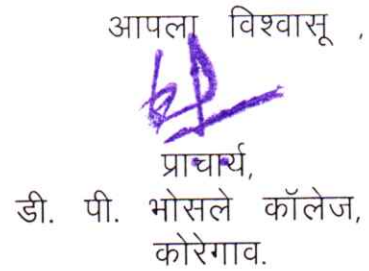 आपला विश्वासू ,
प्राचार्य,
डी. पी. भोसले कॉलेज,
कोरेगाव.